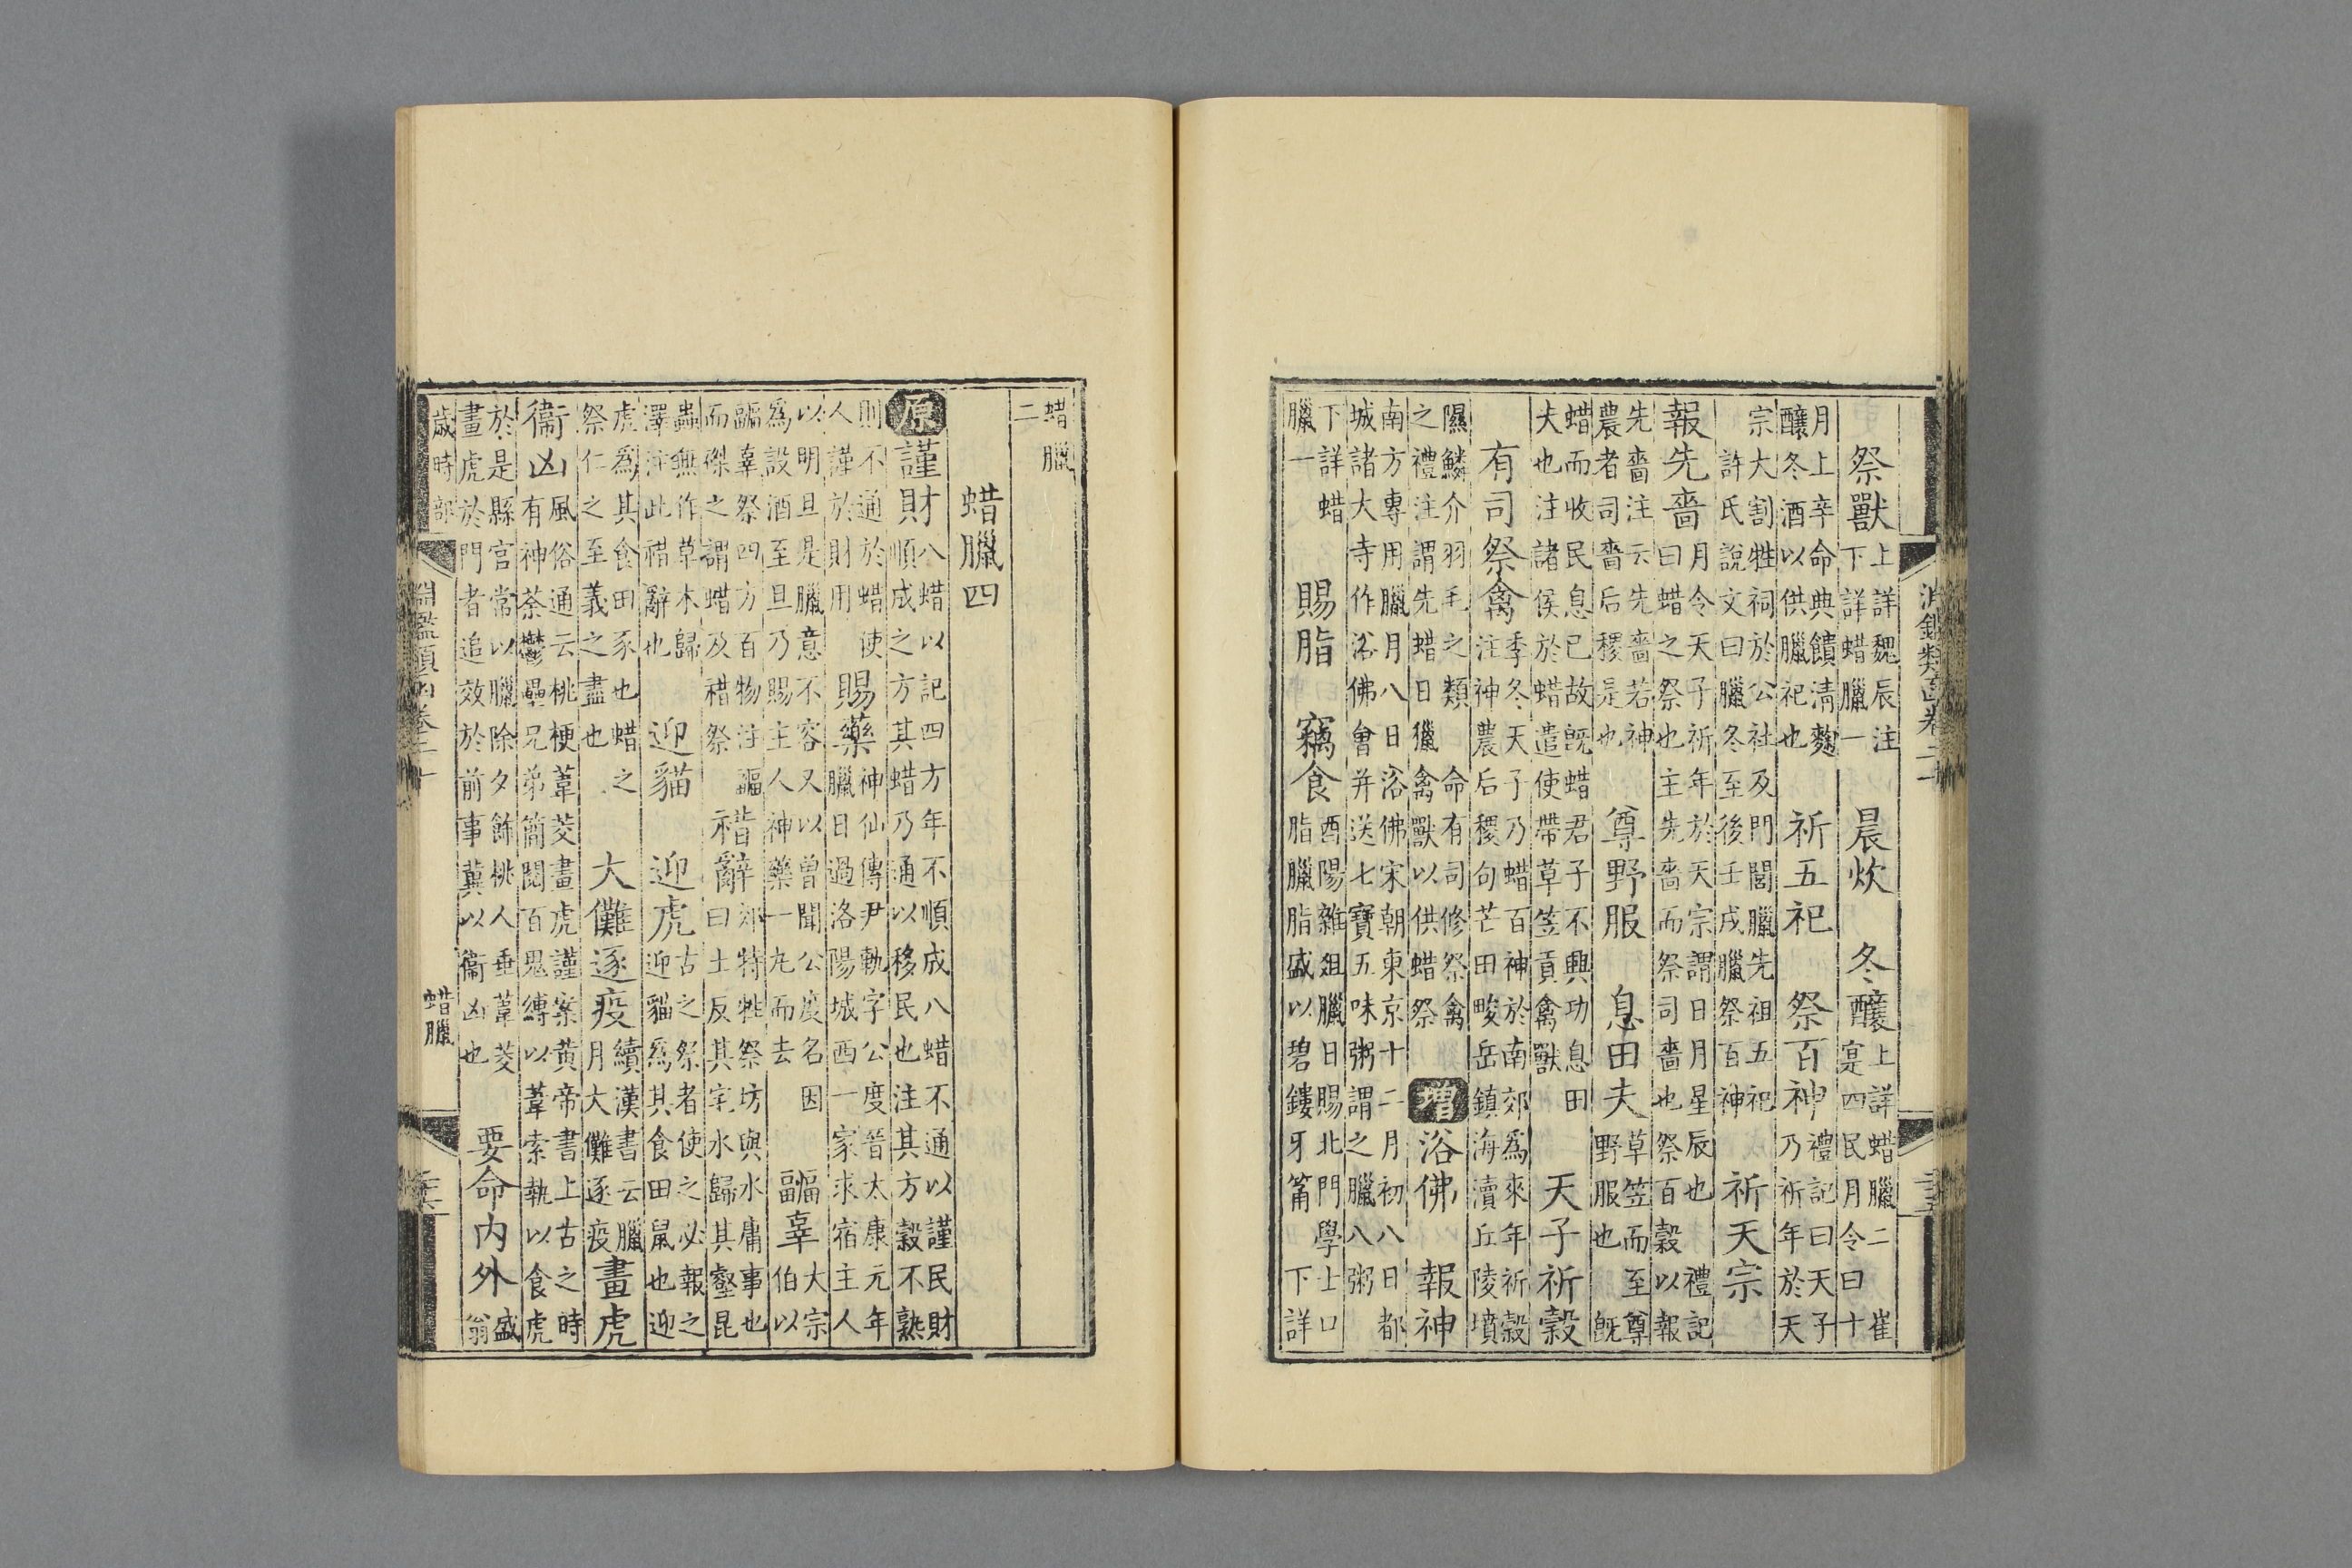 祭獸 上詳魏辰注下詳蜡臘一 晨炊 冬釀 上詳蜡臘二 崔寔四民月令曰十
月上辛命典饋清麴釀冬酒以供臘祀也 祈五祀 祭百神 禮記曰天子乃祈年於天
宗大割牲祠於公社及門閭臘先祖五祀許氏說文曰臘冬至後壬戌臘祭百神 祈天宗
報先嗇 月令天子祈年於天宗謂日月星辰也 禮記曰蜡之祭也主先嗇而祭司嗇也祭百穀以報
先嗇注云先嗇若神農者司嗇后稷是也 尊野服 息田夫 草笠而至尊野服也 既
蜡而收民息已故既蜡君子不興功息田夫也注諸侯於蜡遣使帶草笠貢禽獸 天子祈穀
有司祭禽 季冬天子乃蜡百神於南郊爲來年祈穀注神農后稷句芒田畯岳鎮海瀆丘陵墳
隰鱗介羽毛之類 命有司修祭禽之禮注謂先蜡日獵禽獸以供蜡祭 增 浴佛 報神
南方專用臘月八日浴佛宋朝東京十二月初八日都城諸大寺作浴佛會并送七寶五味粥謂之臘八粥
下詳蜡臘一 賜脂 竊食 酉陽雜俎臘日賜北門學士口脂臘脂盛以碧鏤牙筩 下詳
蜡臘二
蜡臘四
原 謹財 八蜡以記四方年不順成八蜡不通以謹民財順成之方其蜡乃通以移民也注其方穀不熟
則不通於蜡使人謹於財用 賜藥 神仙傳尹軌字公度晉太康元年臘日過洛陽城西一家求宿主人
以明旦是臘意不容又以曾聞公度名因爲設酒至旦乃賜主人神藥一丸而去 疈辜 大宗伯以
疈辜祭四方百物注疈而磔之謂蜡及䄍祭 䄍辭 郊特牲祭坊與水庸事也曰土反其宅水歸其壑昆
蟲無作草木歸澤注此䄍辭也 迎貓 迎虎 古之祭者使之必報之迎貓爲其食田鼠也迎
虎爲其食田豕也蜡之祭仁之至義之盡也 大儺逐疫 續漢書云臘月大儺逐疫 畫虎
衞凶 風俗通云桃梗葦茭畫虎謹案黃帝書上古之時有神荼鬱壘兄弟簡閱百鬼縛以葦索執以食虎
於是縣官常以臘除夕飾桃人垂葦茭畫虎於門者追效於前事冀以衞凶也 要命内外 盛翁
歲時部 淵鑑類函卷二十 蜡臘